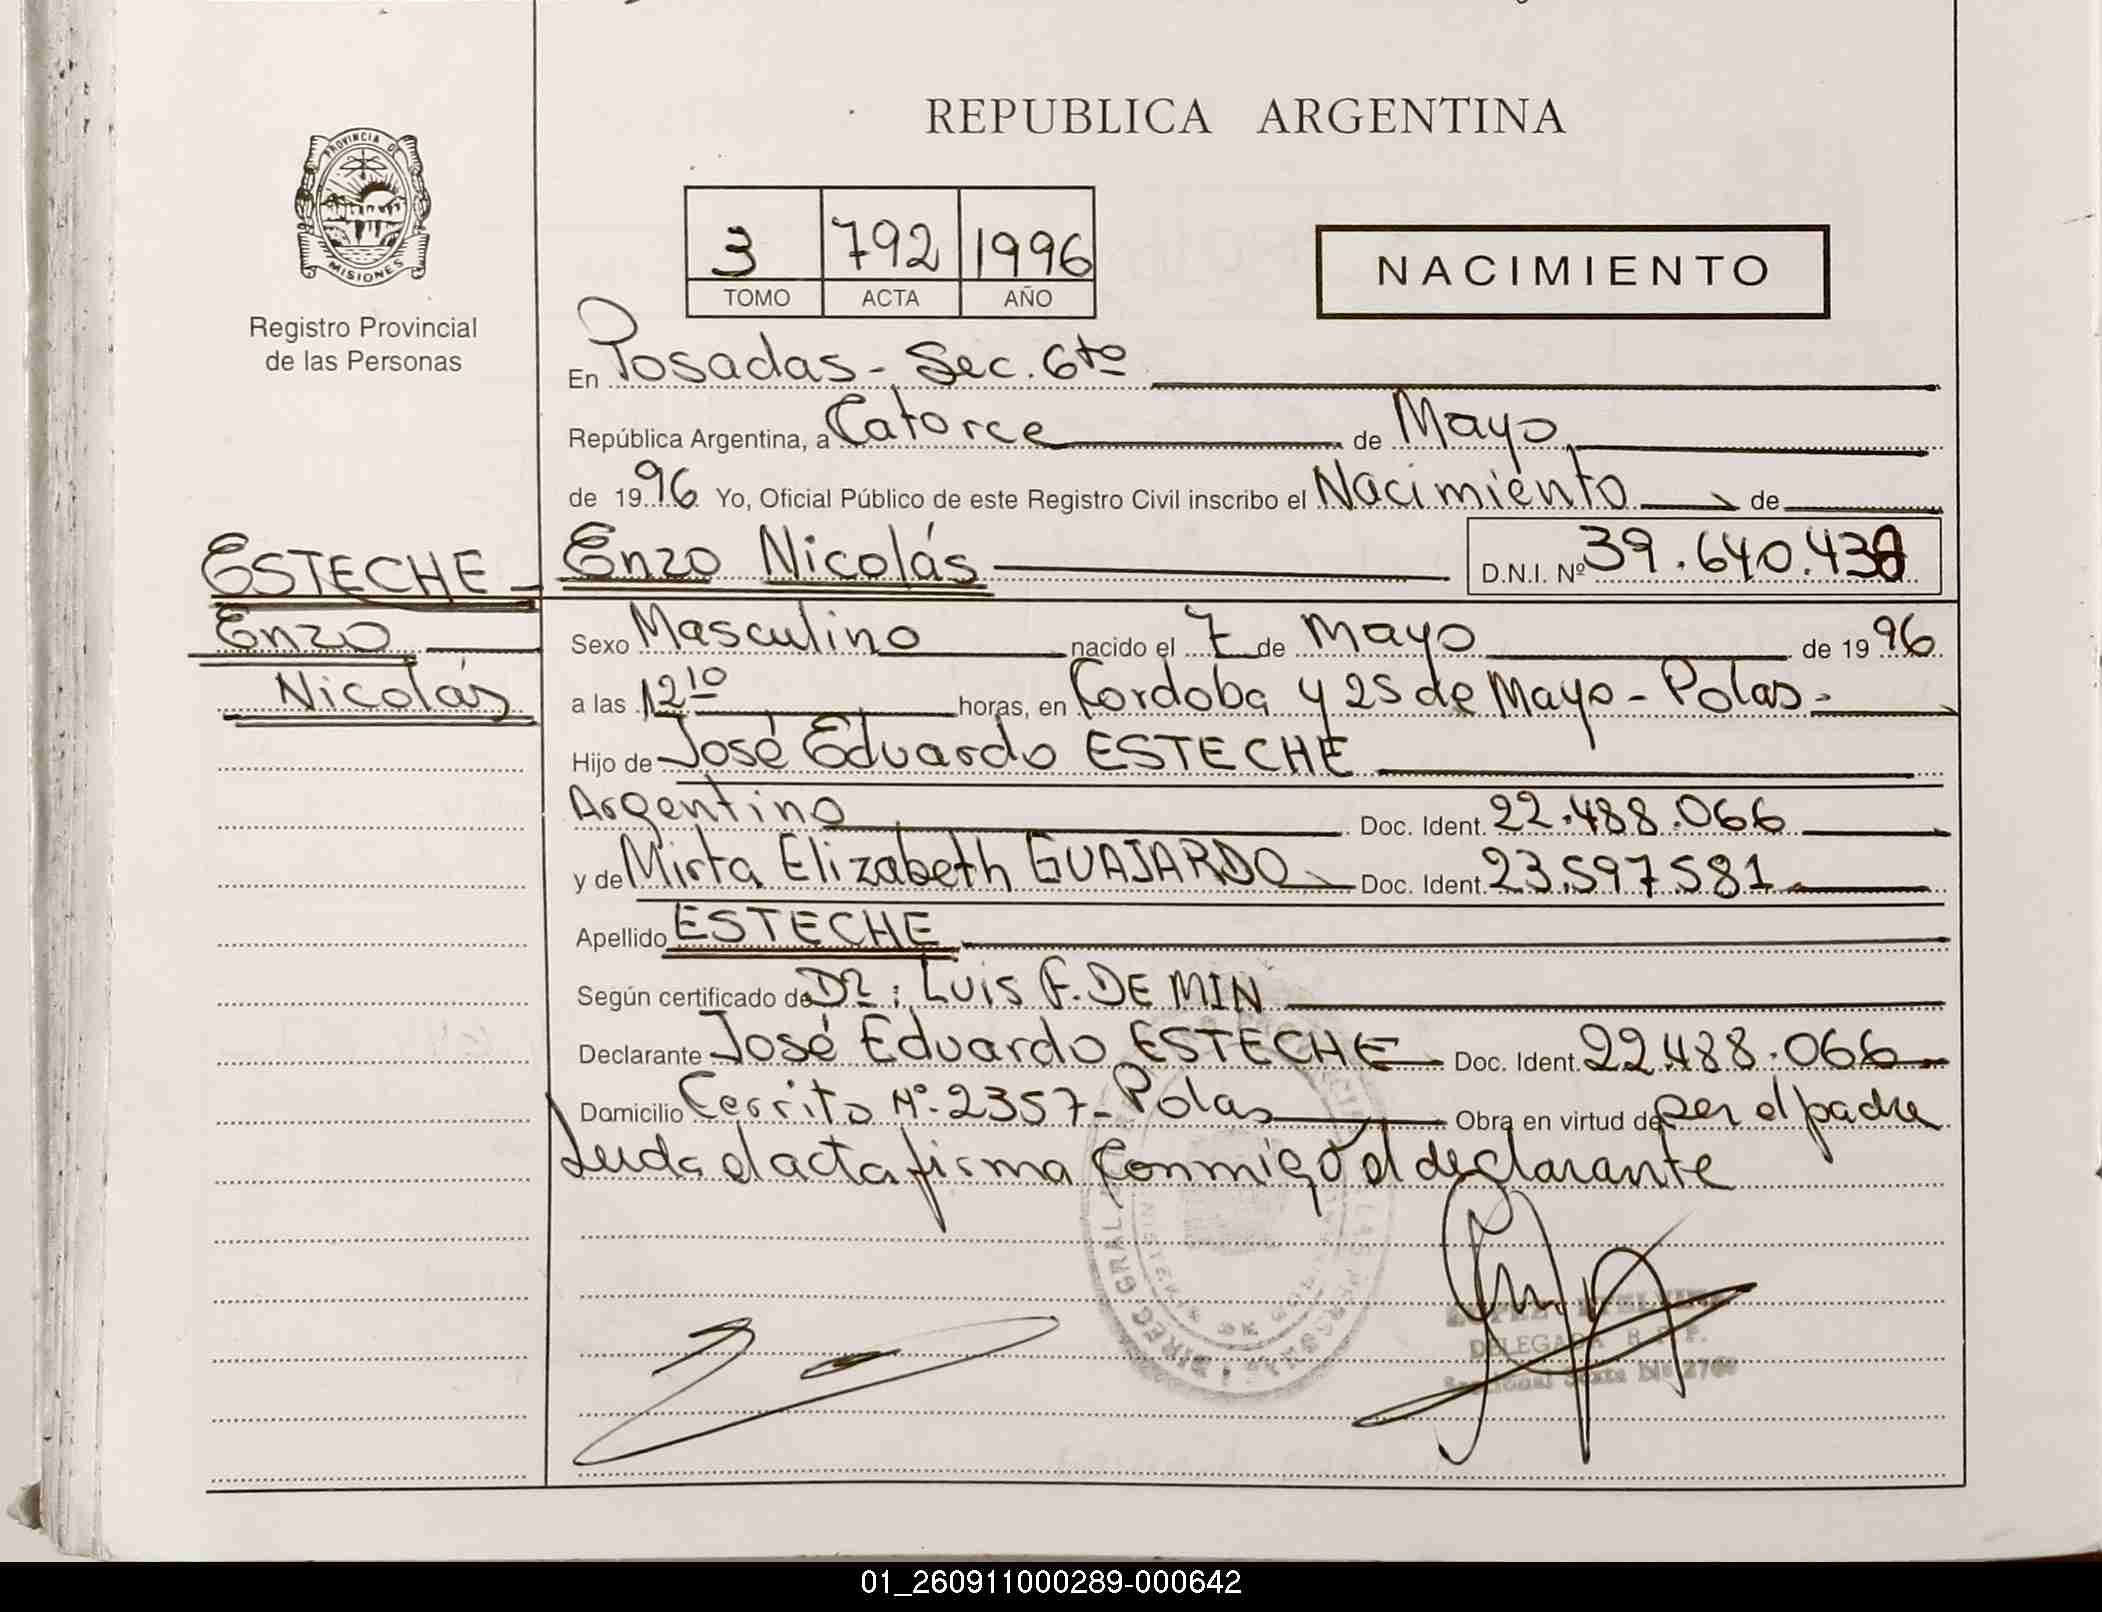 REPUBLICA ARGENTINA
PROVINCIA DE
MISIONES
Registro Provincial
de las Personas
3 792 1996
TOMO ACTA AÑO
NACIMIENTO
En Posadas - Sec. 6to
República Argentina, a Catorce de Mayo
de 1996 Yo, Oficial Público de este Registro Civil inscribo el Nacimiento de
ESTECHE Enzo Nicolás D.N.I. Nº 39.640.43
Enzo Sexo Masculino nacido el 7 de Mayo de 1996
Nicolás a las 12 10 horas, en Cordoba y 25 de Mayo - Pdas -
Hijo de José Eduardo ESTECHE
Argentino Doc. Ident. 22.488.066
y de Mirta Elizabeth GUAJARDO Doc. Ident. 23.597581
Apellido ESTECHE
Según certificado de Dr: Luis F. DE MIN
Declarante José Eduardo ESTECHE Doc. Ident. 22.488.066
Domicilio Cerrito Nº 2357 - Pdas Obra en virtud de ser el padre
Leida el acta firma conmigo el declarante
DELEGADA R. P. P.
01_260911000289-000642